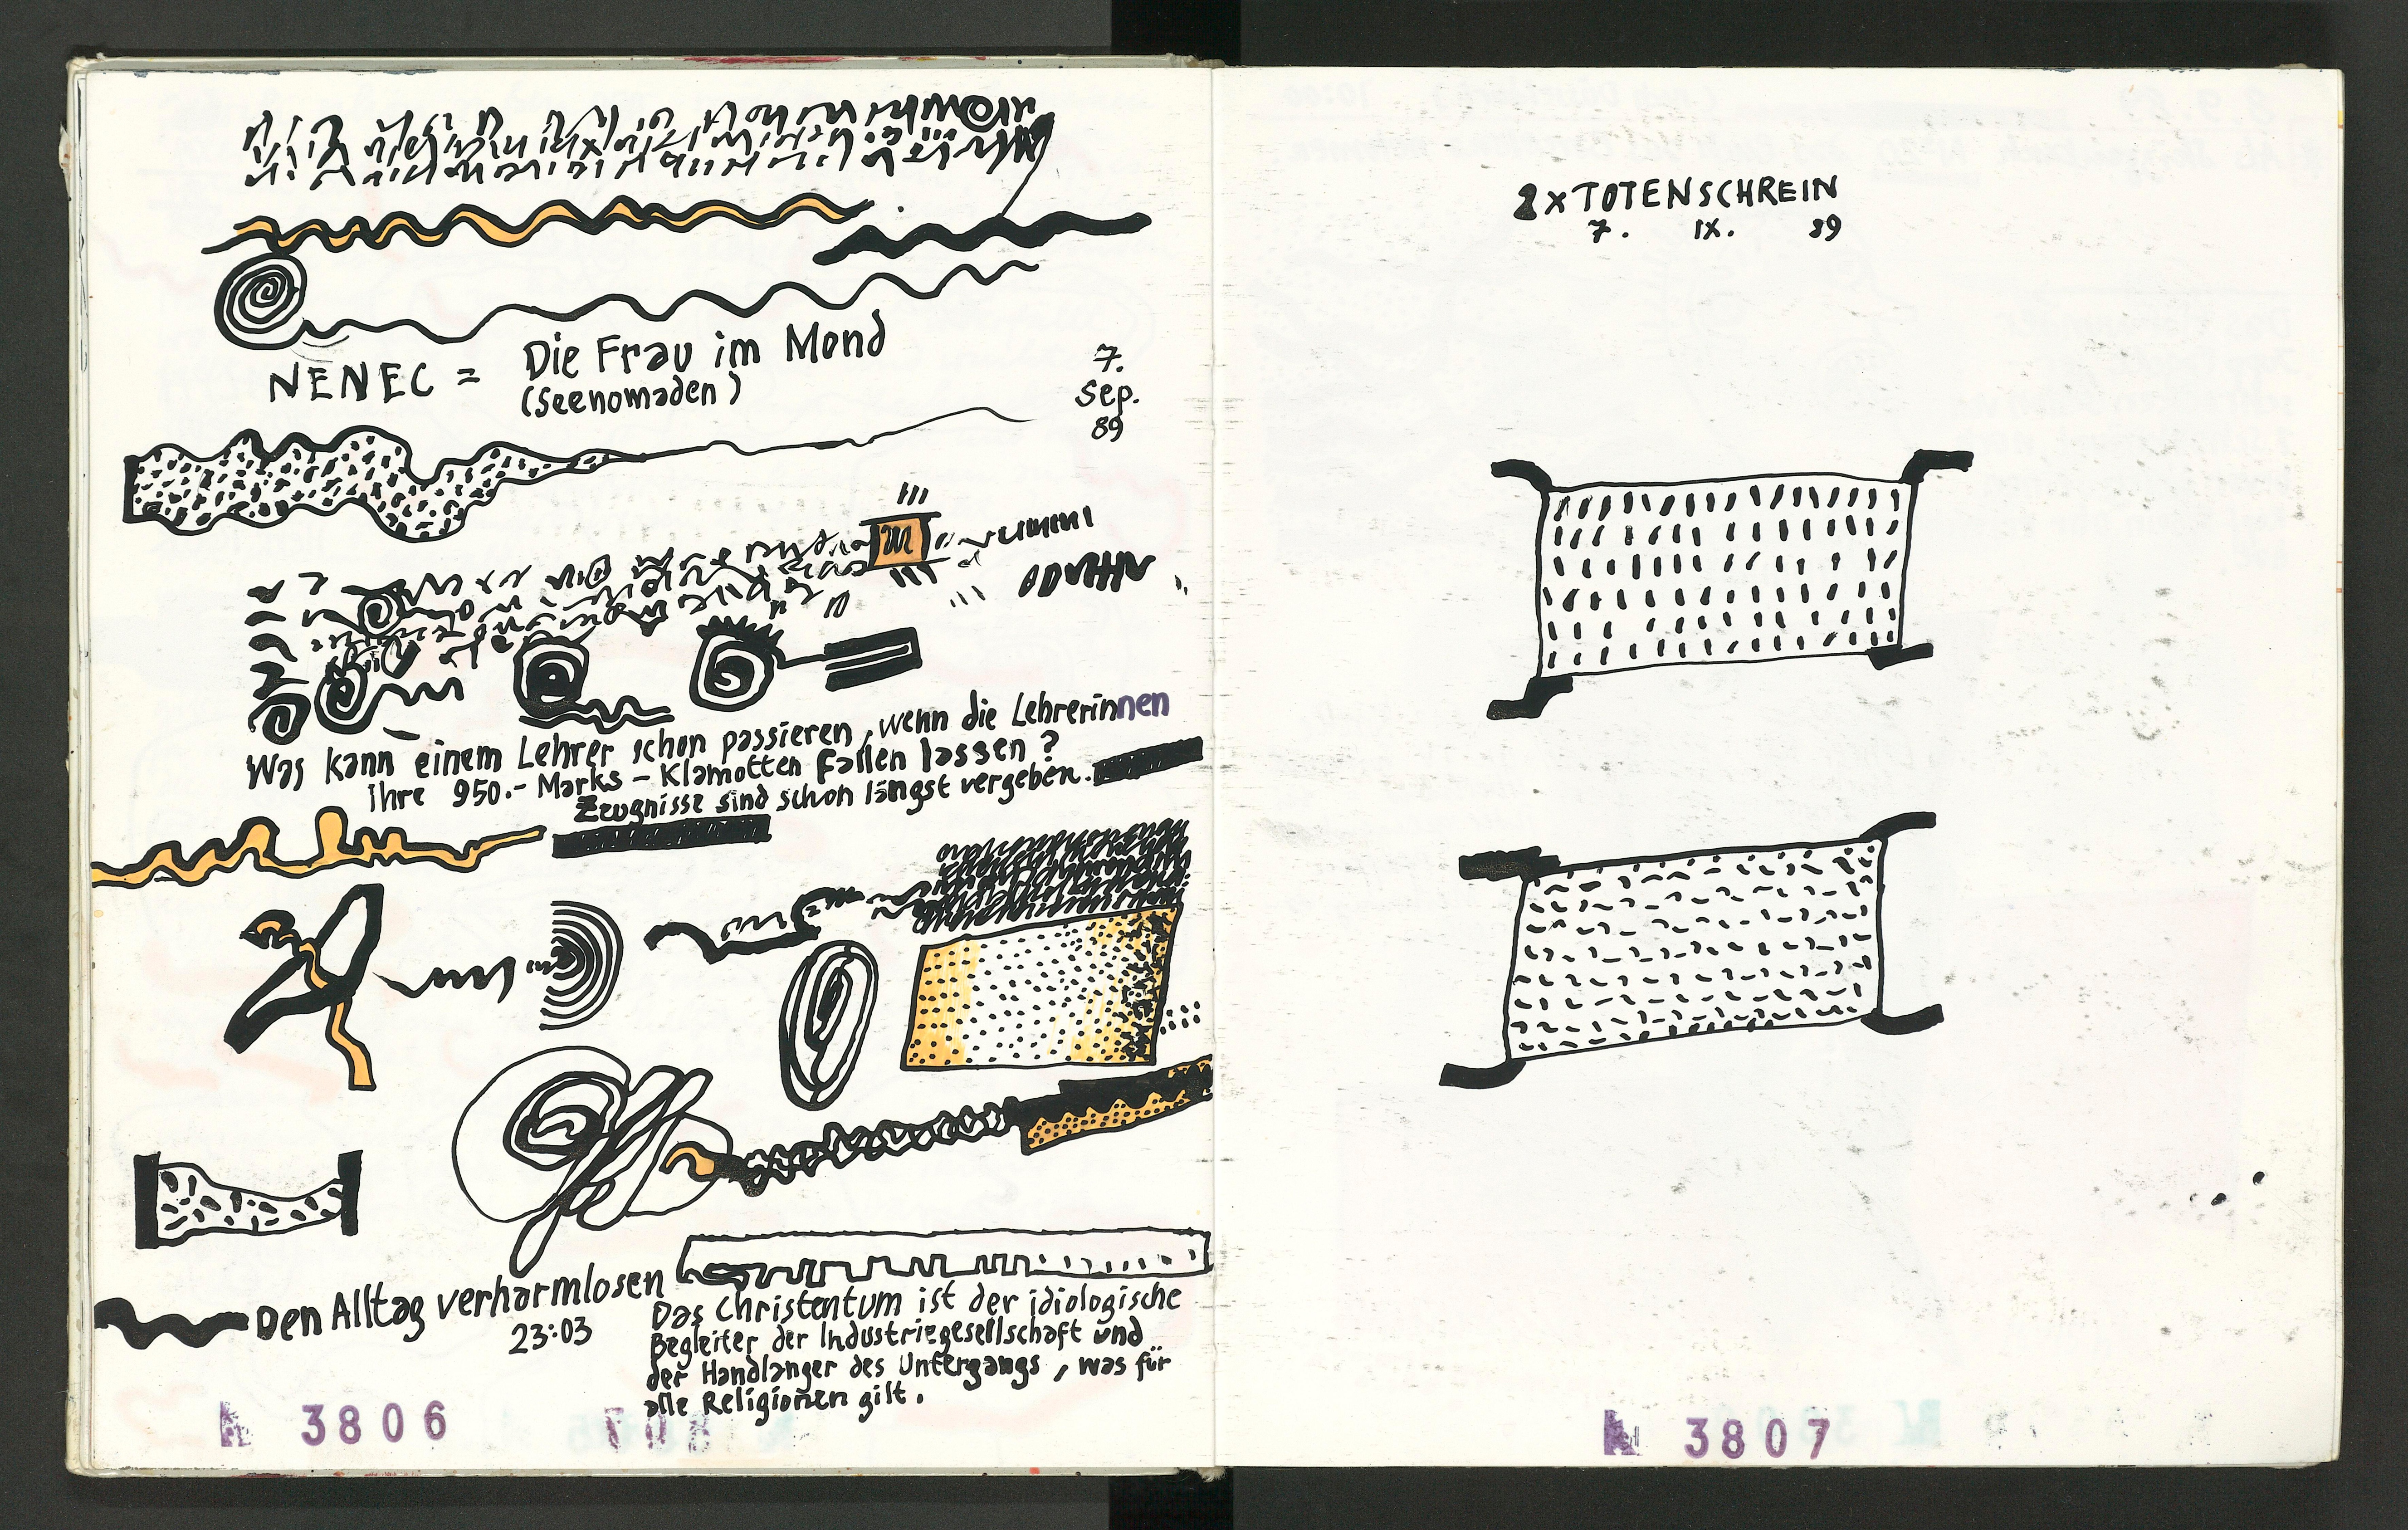 NENEC = Die Frau im Mond
(Seenomaden)
7.
Sep.
89
Was kann einem Lehrer schon passieren, wenn die Lehrerinnen
Ihre 950.- Marks - Klamotten fallen lassen?
Zeugnisse sind schon längst vergeben.
Den Alltag verharmlosen
23:03
Das Christentum ist der idiologische
Begleiter der Industriegesellschaft und
der Handlanger des Untergangs, was für
alle Religionen gilt.
N 3806
2xTOTENSCHREIN
7. IX. 89
N 3807